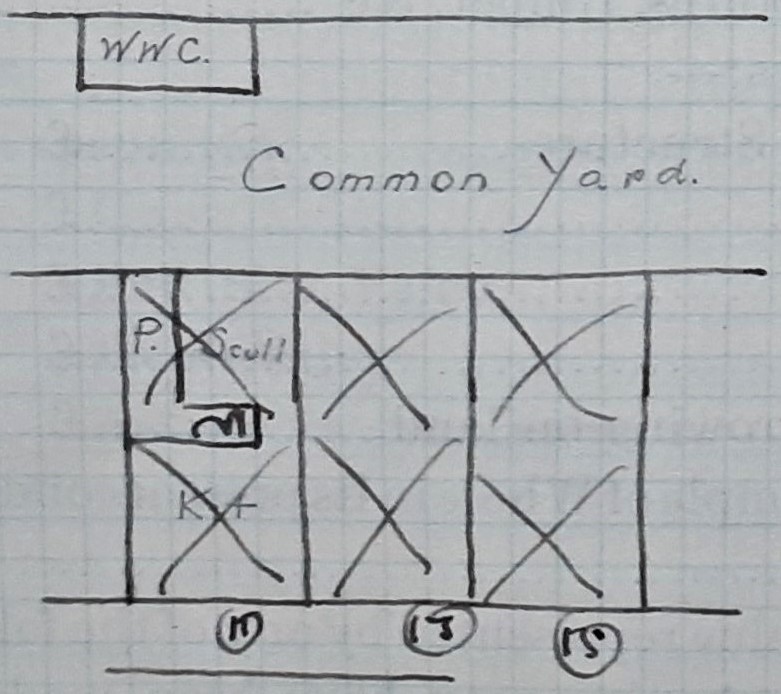 WWC.
Common Yard.
P. Scull
Kit
11 13 15